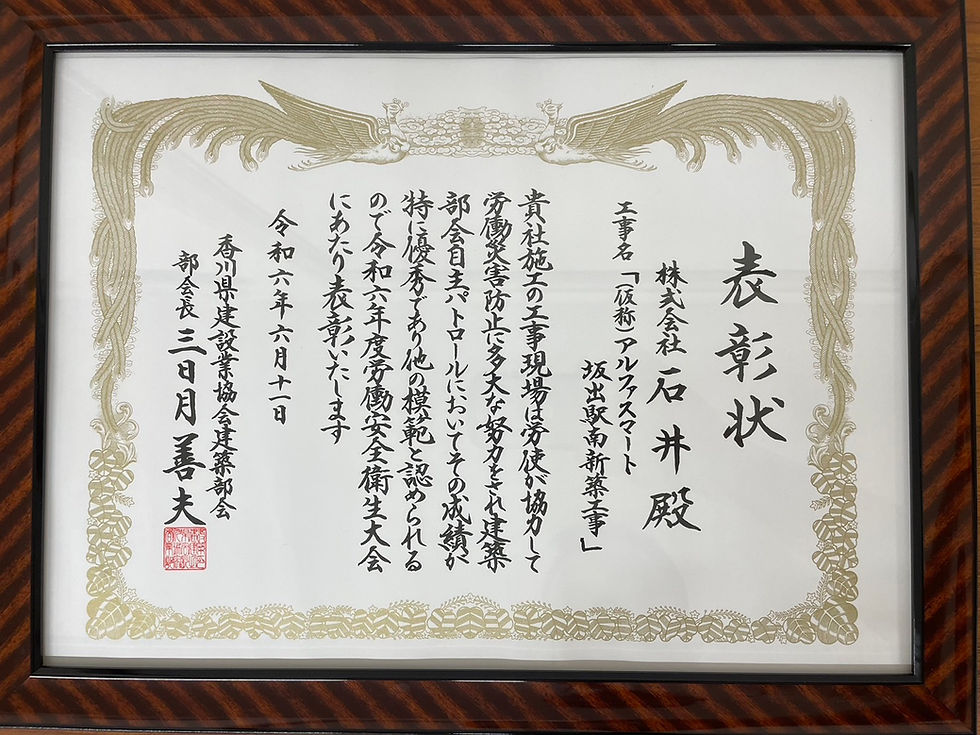 表彰状
株式会社 石井 殿
工事名「(仮称)アルファスマート
坂出駅南新築工事」
貴社施工の工事現場は労使が協力して
労働災害防止に多大な努力をされ建築
部会自主パトロールにおいてその成績が
特に優秀であり他の模範と認められる
ので令和六年度労働安全衛生大会
にあたり表彰いたします
令和六年六月十一日
香川県建設業協会建築部会
部会長 三日月善夫